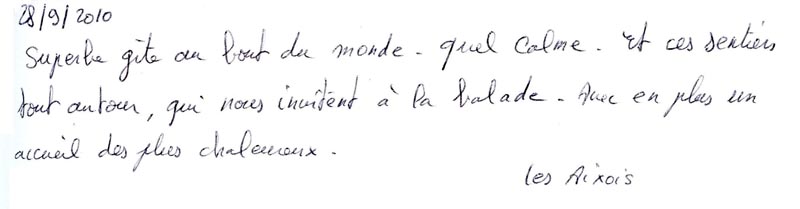 28/9/2010
Superbe gîte au bout du monde - quel calme. Et ces sentiers
tout autour, qui nous invitent à la balade - Avec en plus un
accueil des plus chaleureux.
les Aixois